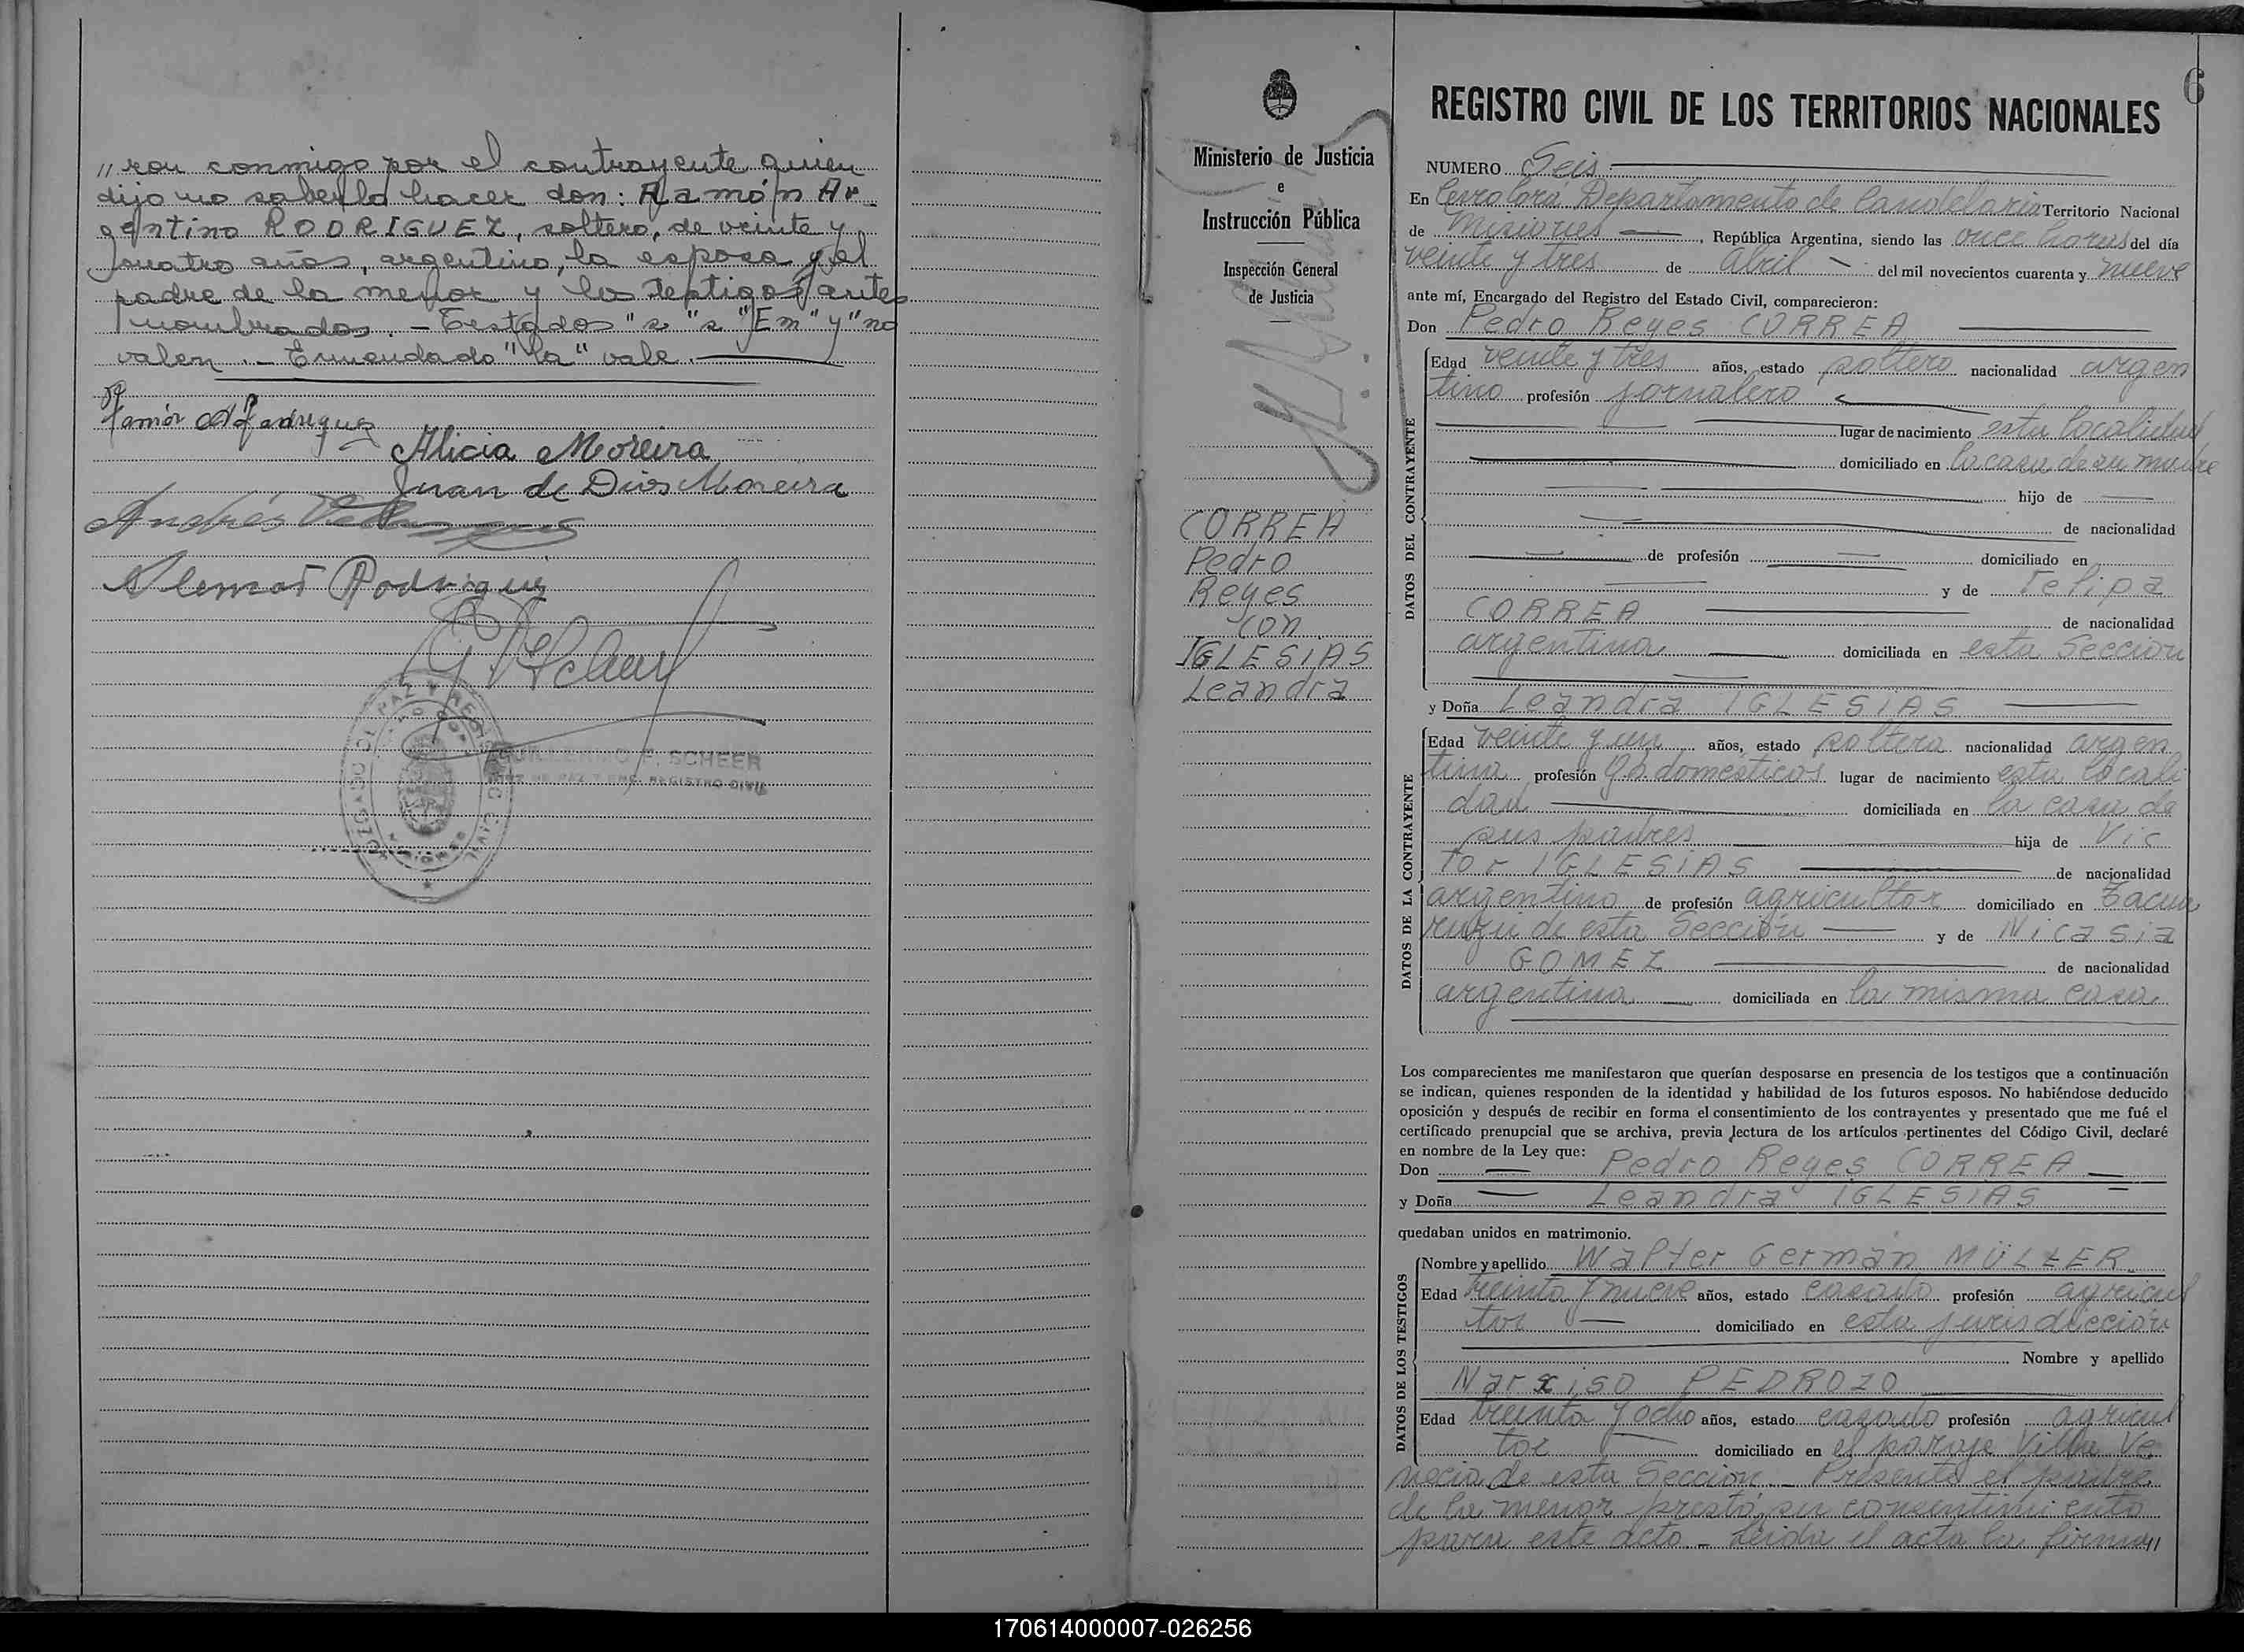 "ron conmigo por el contrayente quien
dijo no saberlo hacer don: Ramón Ar-
gentino RODRIGUEZ, soltero, de veinte y
cuatro años, argentino, la esposa y el
padre de la menor y los testigos antes
nombrados. - Testados "s" "s" "Em" y "no
valen. - Enmendado "la" vale.
Ramón A Rodriguez
Alicia Moreira
Juan de Dios Moreira
Andrés
Rodrigues
JUZGADO DE PAZ Y REGISTRO CIVIL
GUILLERMO F. SCHEER
JUEZ DE PAZ Y ENC. REGISTRO CIVIL
Ministerio de Justicia
e
Instrucción Pública
Inspección General
de Justicia
CORREA
Pedro
Reyes
con
IGLESIAS
Leandra
6
REGISTRO CIVIL DE LOS TERRITORIOS NACIONALES
NUMERO Seis
En Cerro Corá Departamento de Candelaria Territorio Nacional
de Misiones, República Argentina, siendo las once horas del día
veinte y tres de Abril del mil novecientos cuarenta y nueve
ante mí, Encargado del Registro del Estado Civil, comparecieron:
Don Pedro Reyes CORREA
DATOS DEL CONTRAYENTE
Edad veinte y tres años, estado soltero nacionalidad argen
tino profesión jornalero
lugar de nacimiento esta localidad
domiciliado en la casa de su madre
hijo de
de nacionalidad
de profesión domiciliado en
y de Felipa
CORREA de nacionalidad
argentina domiciliada en esta Sección
y Doña Leandra IGLESIAS
DATOS DE LA CONTRAYENTE
Edad veinte y un años, estado soltera nacionalidad argen
tina profesión Qs. domésticos lugar de nacimiento esta locali
dad domiciliada en la casa de
sus padres hija de Vic
tor IGLESIAS de nacionalidad
argentino de profesión agricultor domiciliado en Tacua
ruzú de esta Sección y de Nicasia
GOMEZ de nacionalidad
argentina domiciliada en la misma casa
Los comparecientes me manifestaron que querían desposarse en presencia de los testigos que a continuación
se indican, quienes responden de la identidad y habilidad de los futuros esposos. No habiéndose deducido
oposición y después de recibir en forma el consentimiento de los contrayentes y presentado que me fué el
certificado prenupcial que se archiva, previa lectura de los artículos pertinentes del Código Civil, declaré
en nombre de la Ley que:
Don Pedro Reyes CORREA
y Doña Leandra IGLESIAS
quedaban unidos en matrimonio.
DATOS DE LOS TESTIGOS
Nombre y apellido Walter Germán MÜLLER
Edad treinta y nueve años, estado casado profesión agricul
tor domiciliado en esta jurisdicción
Nombre y apellido
Narciso PEDROZO
Edad treinta y ocho años, estado casado profesión agricul
tor domiciliado en el paraje Villa Ve
necia de esta Sección. - Presente el padre
de la menor prestó su consentimiento
para este acto - Leída el acta la firma"
170614000007-026256